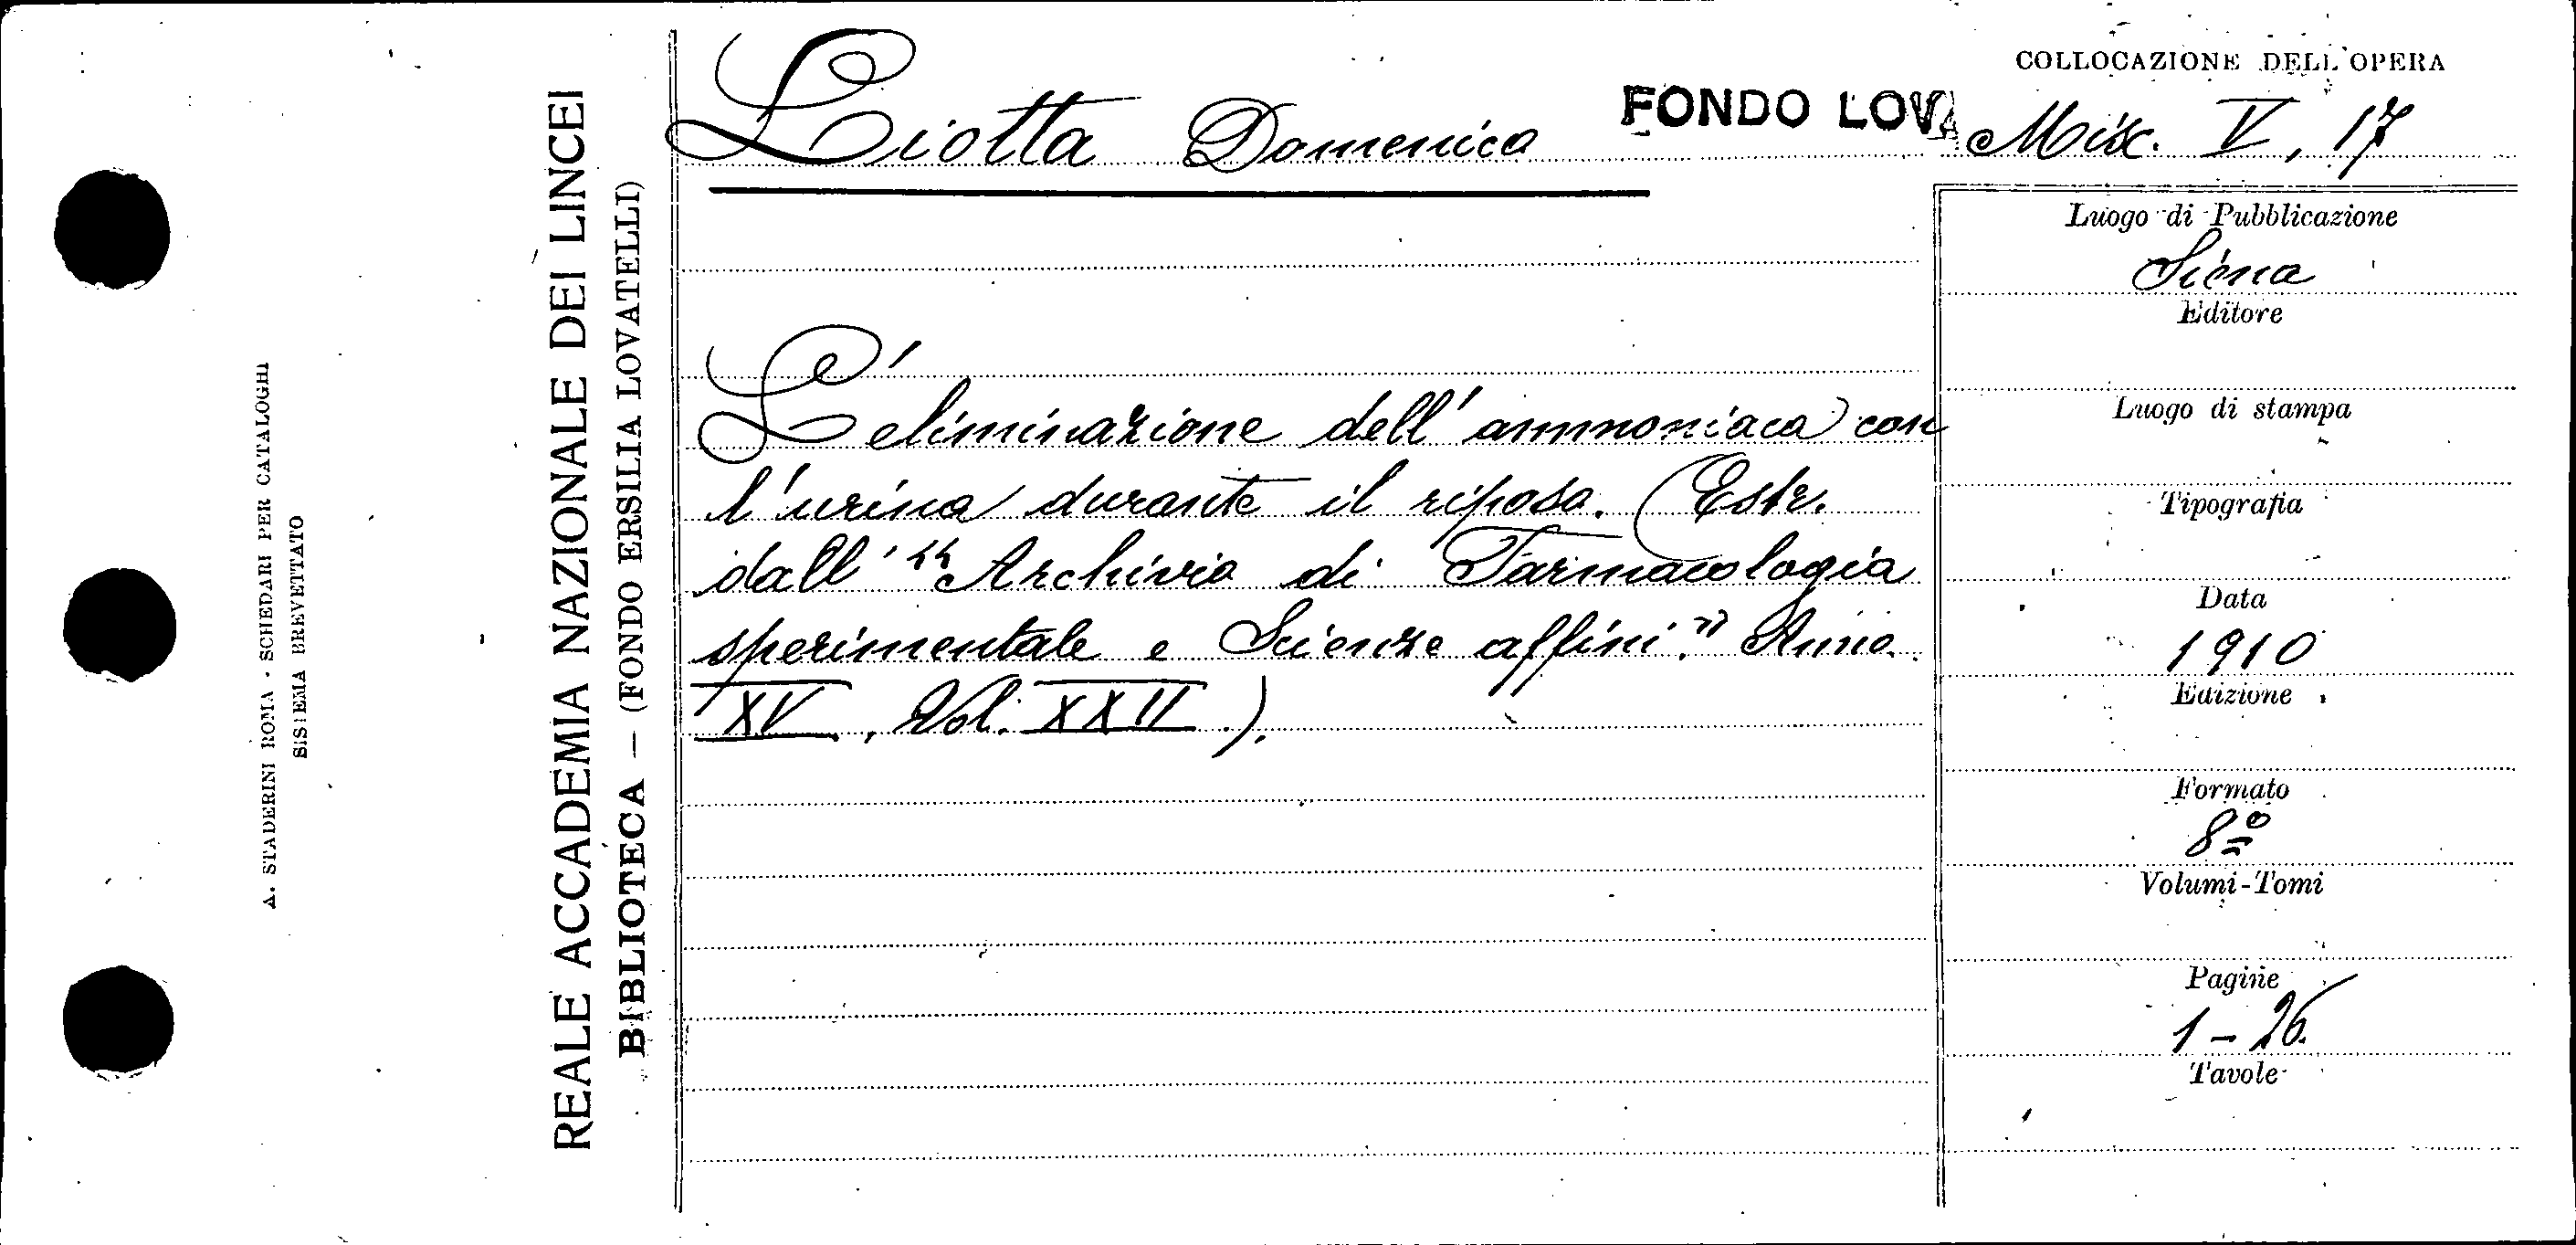 A. STADERINI ROMA - SCHEDARI PER CATALOGHI
SISTEMA BREVETTATO
REALE ACCADEMIA NAZIONALE DEI LINCEI
BIBLIOTECA — (FONDO ERSILIA LOVATELLI)
Liotta Domenico
FONDO LOVA
L'eliminazione dell'ammoniaca con
l'urina durante il riposo. (Estr.
dall' "Archivio di Farmacologia
sperimentale e Scienze affini." Anno
XV, Vol. XXII).
COLLOCAZIONE DELL'OPERA
Misc. V, 17
Luogo di Pubblicazione
Siena
Editore
Luogo di stampa
Tipografia
Data
1910
Edizione
Formato
8º
Volumi-Tomi
Pagine
1-26.
Tavole